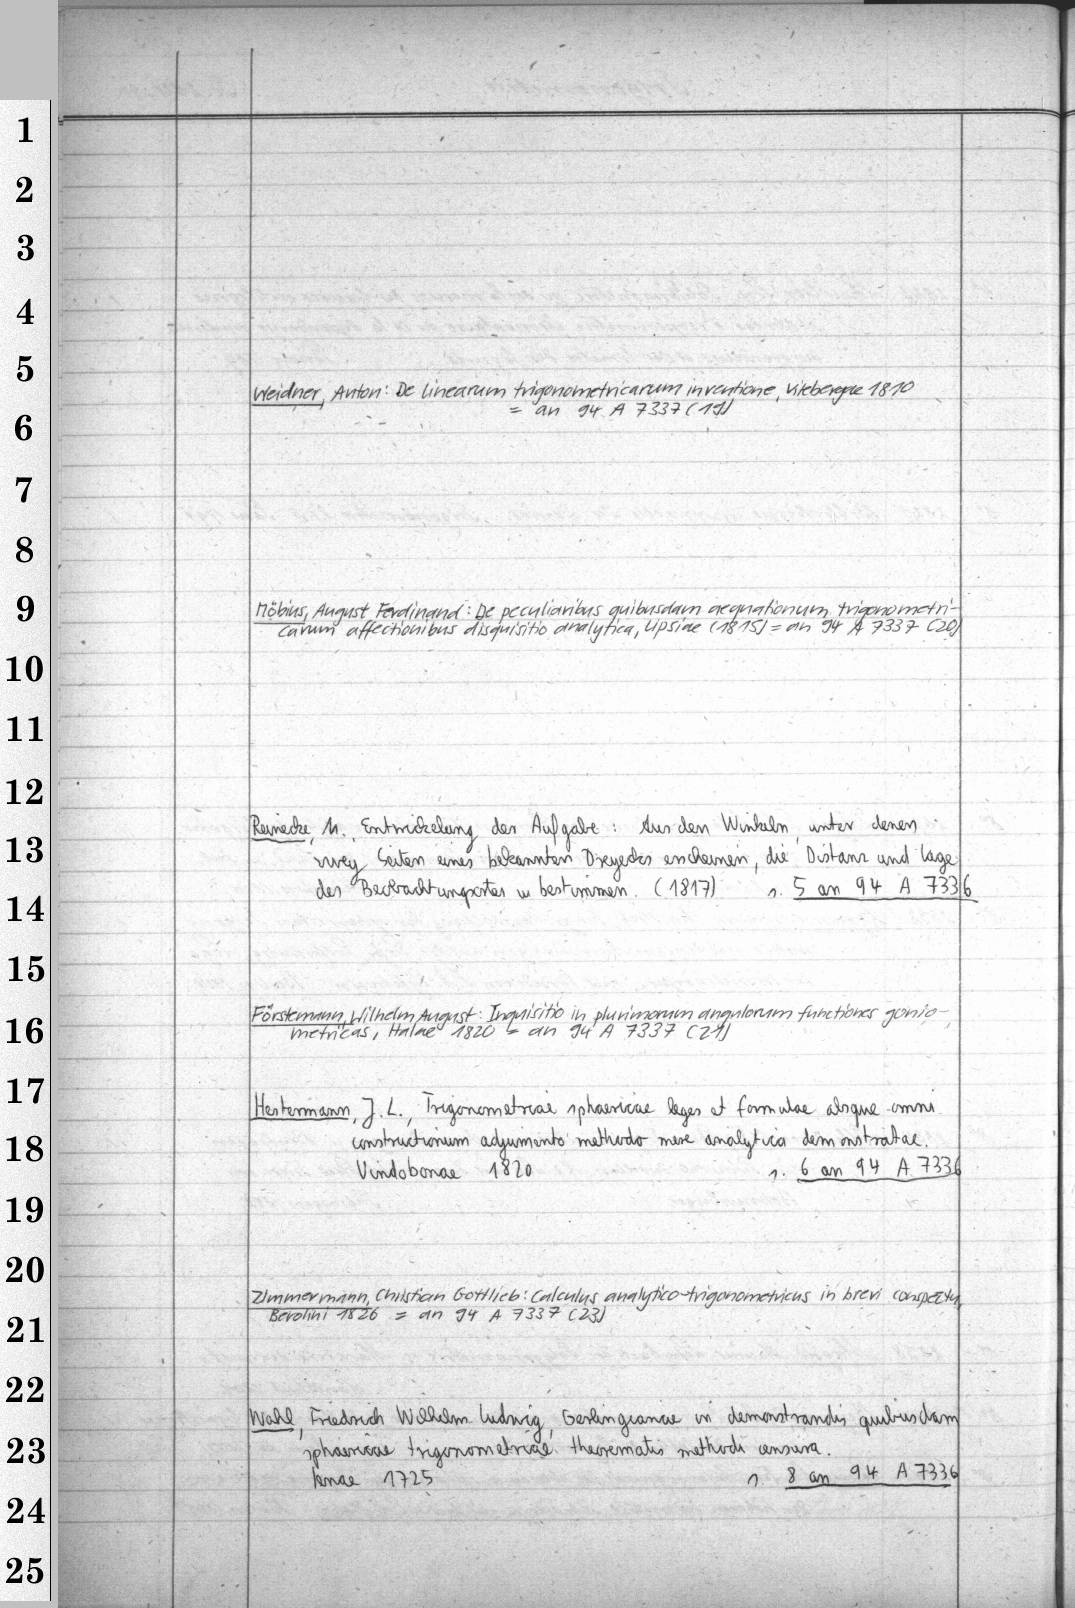 1
2
3
4
5
Weidner, Anton: De linearum trigonometricarum inventione, Vitebergae 1810
= an 94 A 7337 (19)
6
7
8
9
Möbius, August Ferdinand: De peculiaribus quibusdam aequationum trigonometri-
carum affectionibus disquisitio analytica, Lipsiae (1815) = an 94 A 7337 (20)
10
11
12
Reinecke, M., Entwickelung der Aufgabe: Aus den Winkeln, unter denen
13
zwey Seiten eines bekannten Dreyecks erscheinen, die Distanz und Lage
des Beobachtungsortes zu bestimmen. (1817) s. 5 an 94 A 7336
14
15
Förstemann, Wilhelm August: Inquisitio in plurimorum angulorum functiones gonio-
16
metricas, Halae 1820 = an 94 A 7337 (21)
17
Hestermann, J. L., Trigonometriae sphaericae leges et formulae absque omni
18
constructionum adjumento methodo mere analytica demonstratae.
Vindobonae 1820 s. 6 an 94 A 7336
19
20
Zimmermann, Christian Gottlieb: Calculus analytico-trigonometricus in brevi conspectu,
Berolini 1826 = an 94 A 7337 (23)
21
22
Wahl, Friedrich Wilhelm Ludwig, Gerlingianae in demonstrandis quibusdam
23
sphaericae trigonometriae theorematis methodi censura.
Ienae 1725 s. 8 an 94 A 7336
24
25